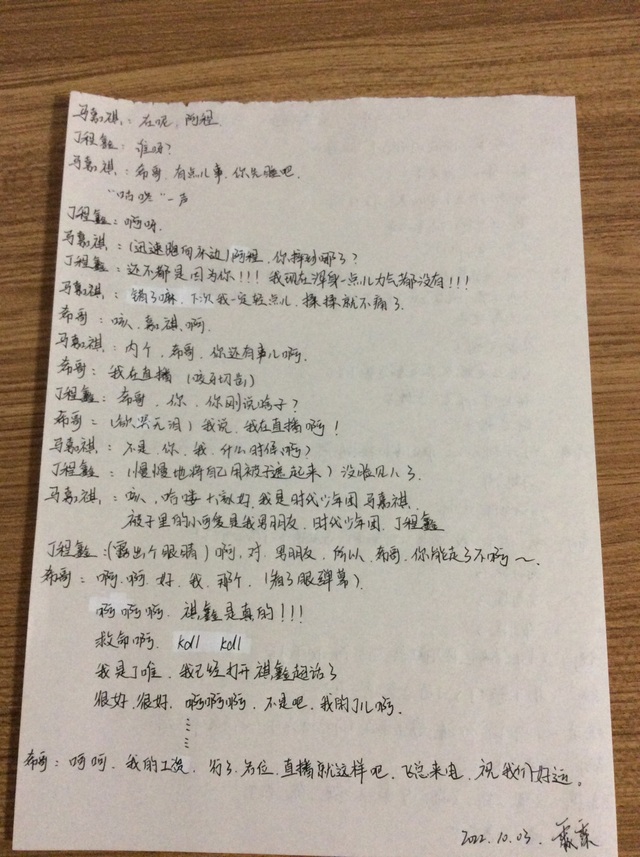 马嘉祺：在呢，阿程
丁程鑫：谁呀？
马嘉祺：希哥，有点儿事，你先播吧.
“咕咚”一声
丁程鑫：啊呀.
马嘉祺：(迅速跑向床边)阿程，你摔到哪了？
丁程鑫：还不都是因为你！！！我现在浑身一点儿力气都没有！！！
马嘉祺：错了嘛，下次我一定轻点儿，揉揉就不痛了.
希哥：咳、嘉祺啊.
马嘉祺：内个，希哥，你还有事儿啊.
希哥：我在直播(咬牙切齿)
丁程鑫：希哥，你，你刚说啥子？
希哥：(欲哭无泪)我说，我在直播啊！
马嘉祺：不是，你，我，什么时候啊)
丁程鑫：(慢慢地将自己用被子遮起来)没脸见人了.
马嘉祺：咳、哈喽大家好，我是时代少年团马嘉祺，
被子里的小可爱是我男朋友，时代少年团，丁程鑫
丁程鑫:(露出个眼睛)啊，对，男朋友，所以，希哥，你能走了不啊～.
希哥：啊，啊好，我，那个，(看了眼弹幕).
啊啊啊，祺鑫是真的！！！
救命啊， koll koll
我是丁唯，我已经打开祺鑫超话了
很好，很好，啊啊啊，不是吧，我的丁儿啊.
······
希哥：呵呵，我的工资，行了各位，直播就这样吧，飞总来电，祝我们好运。
2022.10.03.